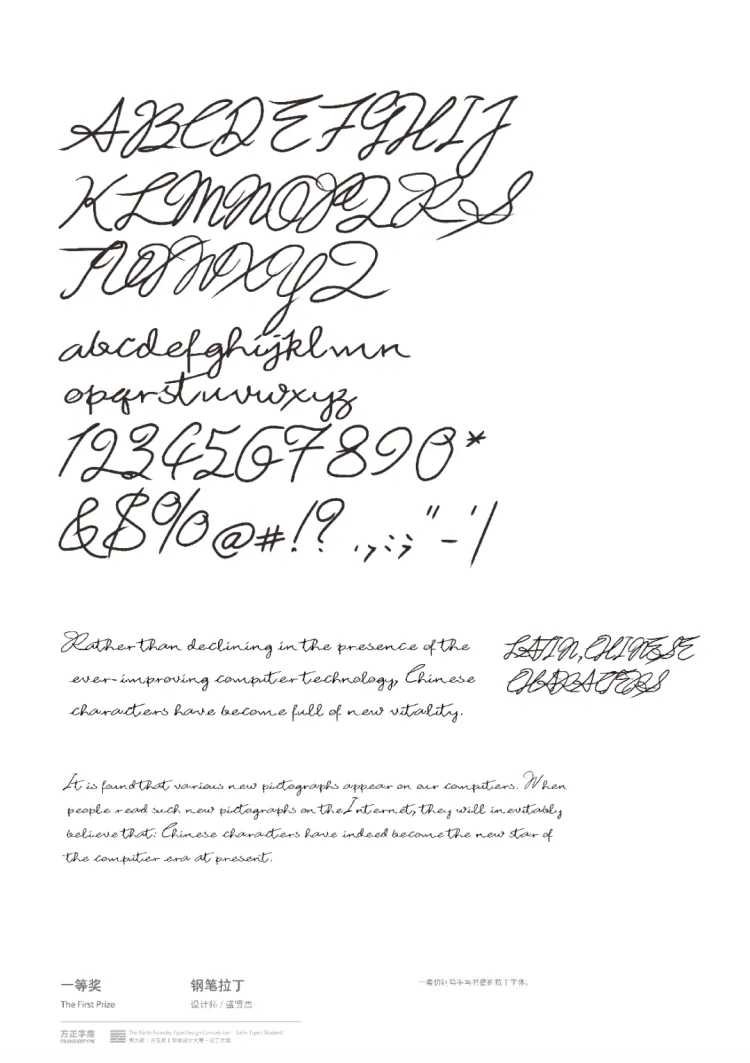 ABCDEFGHIJ
KLMNOPQRS
TUVWXYZ
abcdefghijklmn
opqrstuvwxyz
1234567890*
&$%@#!? .,:; "-'/
Rather than declining in the presence of the
ever-improving computer technology, Chinese
characters have become full of new vitality.
LATIN, CHINESE
CHARACTERS
It is found that various new pictographs appear on our computers. When
people read such new pictographs on the Internet, they will inevitably
believe that: Chinese characters have indeed become the new star of
the computer era at present.
一等奖
The First Prize
钢笔拉丁
设计师 / 盛贤杰
一套仿钢笔手写书信的拉丁字体。
方正字库
FOUNDERTYPE